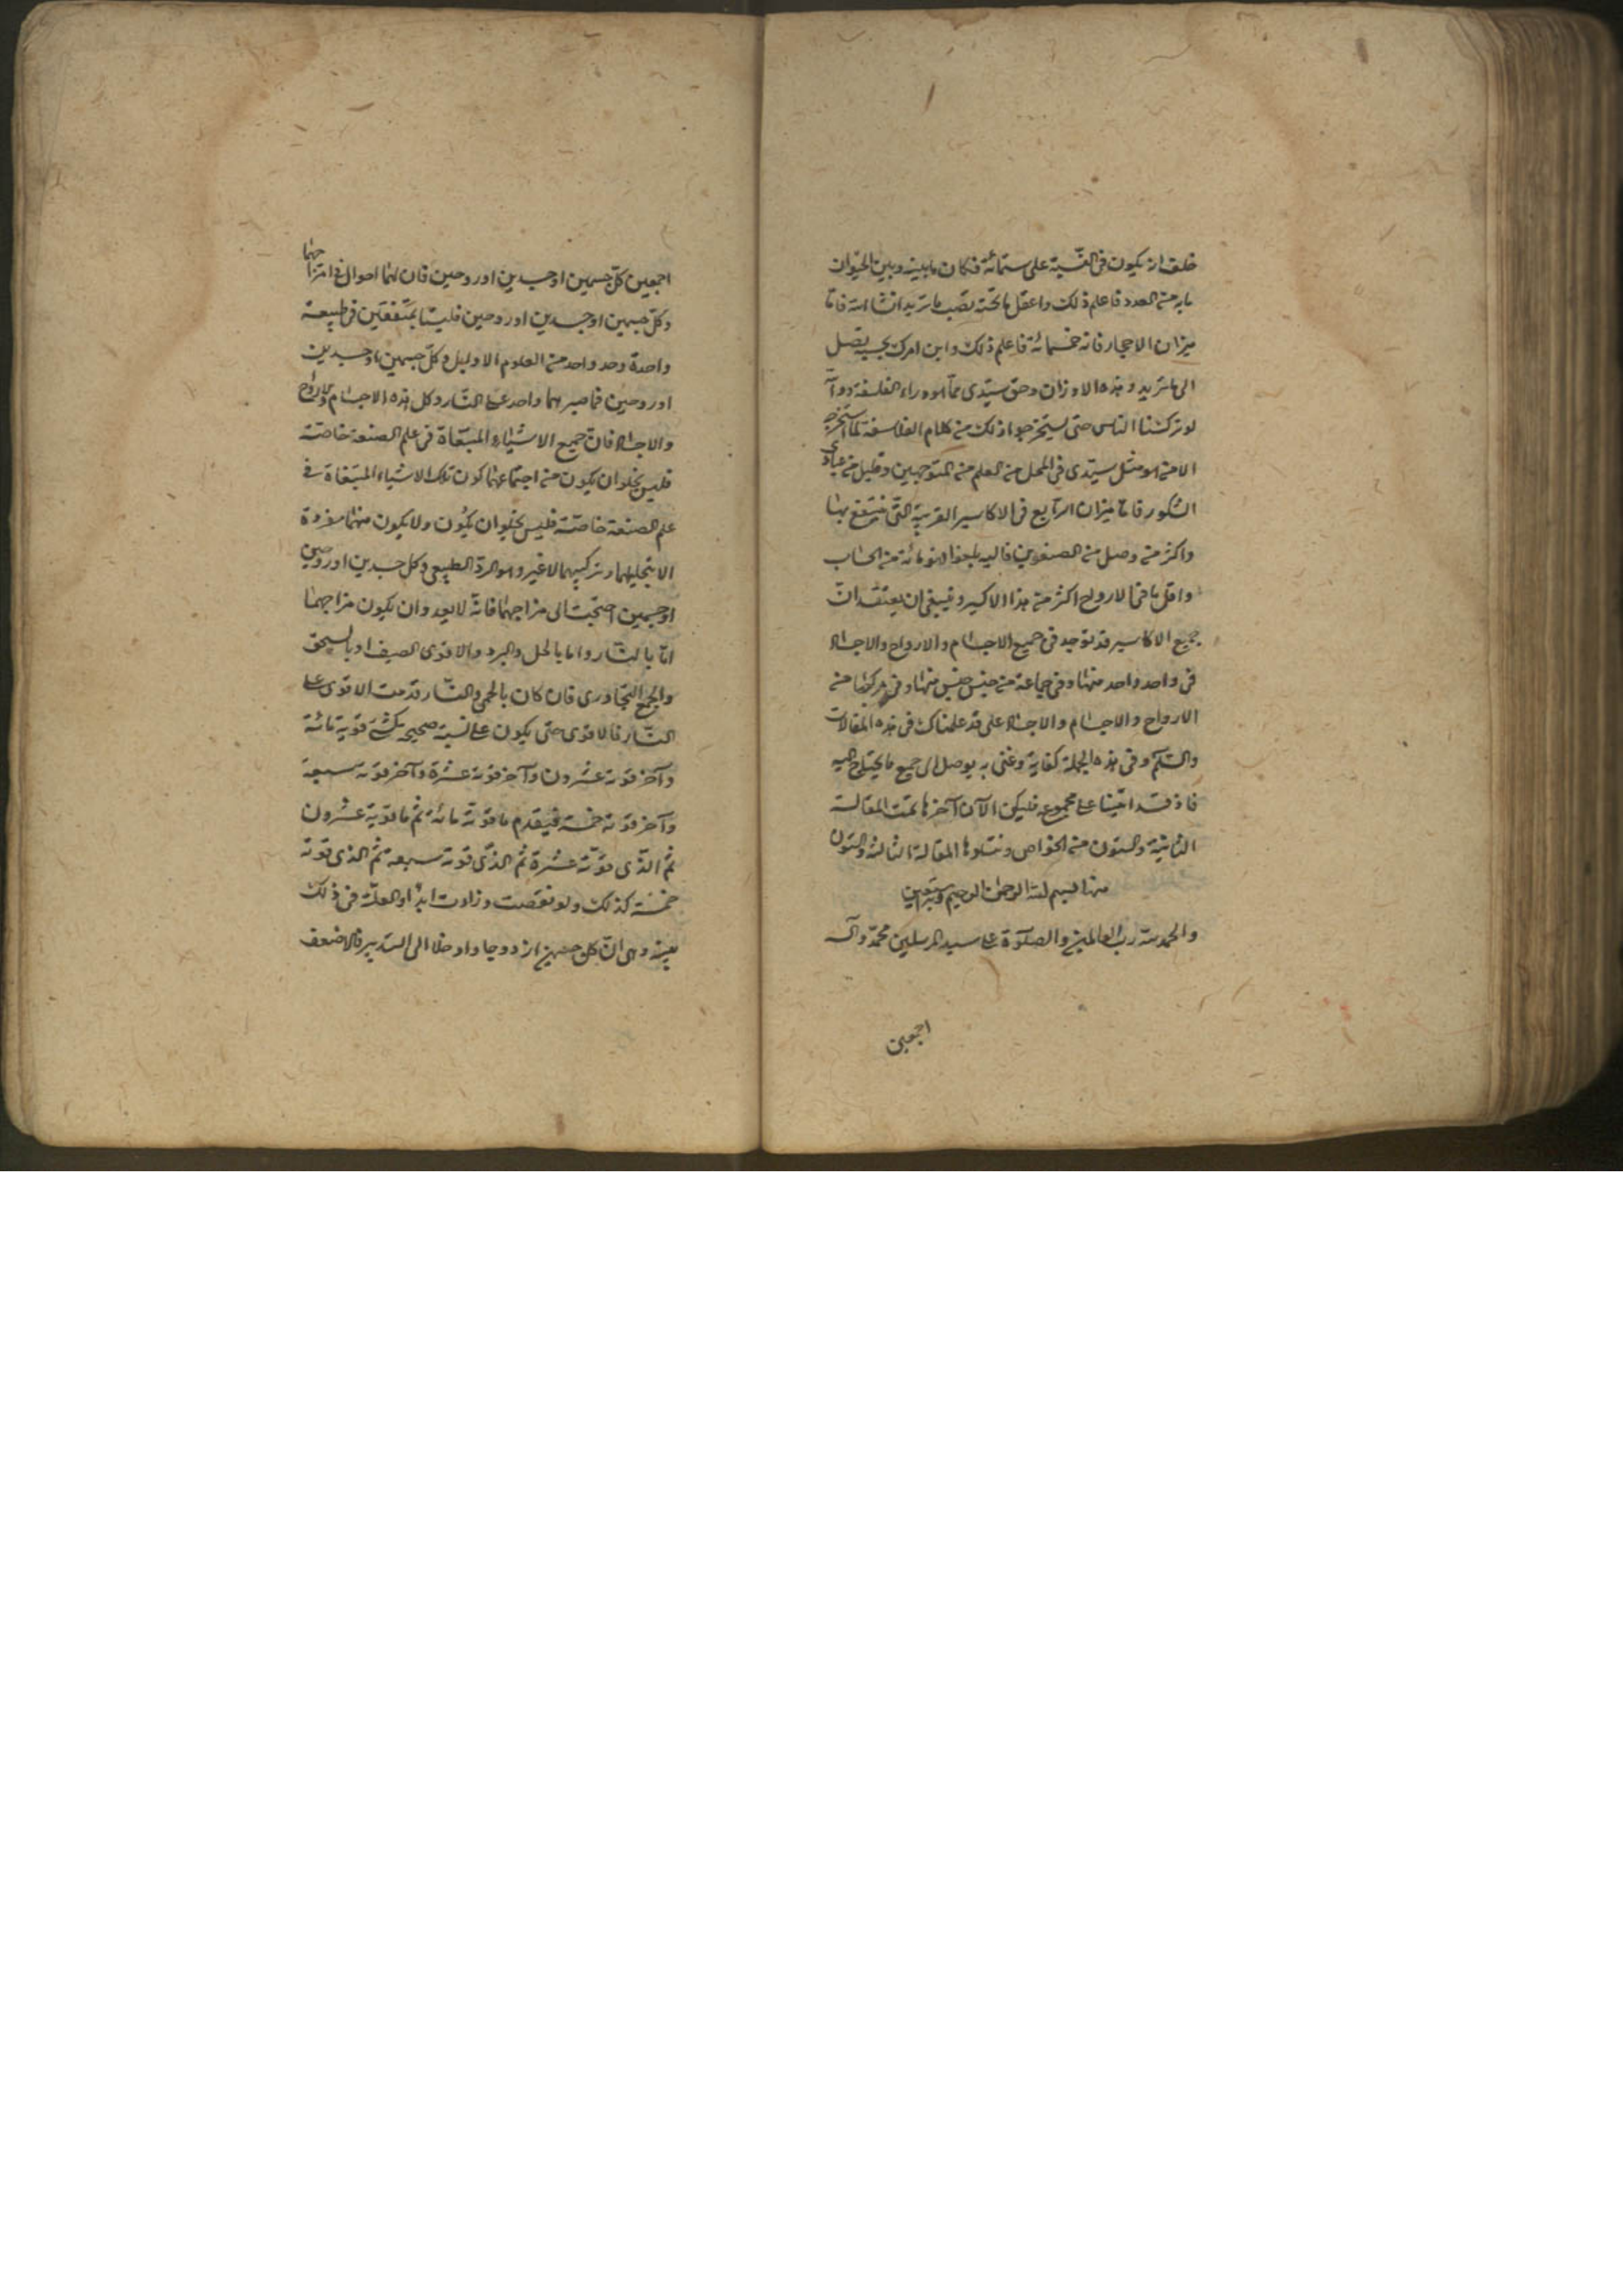 خلف ان يكون فى النسبة على ستمائة فكان ما بينه وبين الحيوان
ما به من العدد فاعلم ذلك واعقل ما تحته تصب ما تريد انشا الله فاما
ميزان الاحجار فانه خمسمائة فاعلم ذلك وابن امرك بحسبه تصل
الى ما تريد وهذه الاوزان وحق سيّدى مما هو وراء الفلسفة
لو تركنا الناس حتى يستخرجوا ذلك من كلام الفلاسفة لما استخرجه
الا من هو مثل سيّدى فى المحل من العلم من المتوجهين وقليل من عبادى
الشكور فاما ميزان الرابع فى الاكاسير القريبة التى ينتفع بها
واكثر من وصل من الصنعويين فاليه بلغوا فهو مائة من الحساب
واقل ما فى الارواح اكثر من هذا الاكسير وينبغى ان يعتقد انّ
جميع الاكاسير قد توجد فى جميع الاجسام والارواح والاجساد
فى واحد واحد منها وفى جماعة من جنس جنس منها وفى مركباتها من
الارواح والاجسام والاجساد على قد علمناك فى هذه المقالات
والسّلم وفى هذه الجملة كفاية وغنى به يوصل الى جميع ما يحتاج اليه
فاذ قد اتينا على مجموعه فليكن الآن آخرها تمت المقالة
الثانية والستون من الخواص وتتلوها المقالة الثالثة والستون
منه بسم الله الرحمن الرحيم وبه نستعين
والحمد لله رب العالمين والصلوة على سيد المرسلين محمّد وآله
اجمعين
اجمعين كلّ جسمين او جسدين او روحين فان لهما احوال فى امتزاجهما
وكلّ جسمين او جسدين او روحين فليسا بمتّفقين فى طبيعة
واحدة وحد واحد من العلوم الاوايل وكلّ جسمين او جسدين
او روحين فما صبرهما واحد على النار وكل هذه الاجسام والارواح
والاجساد فانّ جميع الاشياء المبتغاة فى علم الصنعة خاصّة
فليس يخلو ان يكون من اجتماعهما كون تلك الاشياء المبتغاة فى
علم الصنعة خاصّة فليس يخلو ان يكون ولا يكون منهما مفردة
الا بتحليلهما وتركيبهما لا غير وهو الرد الطبيعى وكل جسدين او روحين
او جسمين احتجت الى مزاجهما فانّه لا يعدو ان يكون مزاجهما
امّا بالنّار واما بالحل والبرد والاقوى الصيف او بالسحق
والجمع التجاورى فان كان بالحمى والنّار قدمت الاقوى على
النّار فالاقوى حتى يكون على نسبة صحيحه كشئ قوّته مائة
وآخر قوته عشرون وآخر قوته عشرة وآخر قوته سبعة
وآخر قوته خمسة فيقدم ما قوته مائة ثم ما قوته عشرون
ثم الذّى قوّته عشرة ثم الذّى قوته سبعة ثم الذى قوته
خمسة كذلك ولو نقصت وزادت ابدًا والعلّة فى ذلك
بعينه وهى انّ كل جسمين ازدوجا وادخلا الى التدبير فالاضعف